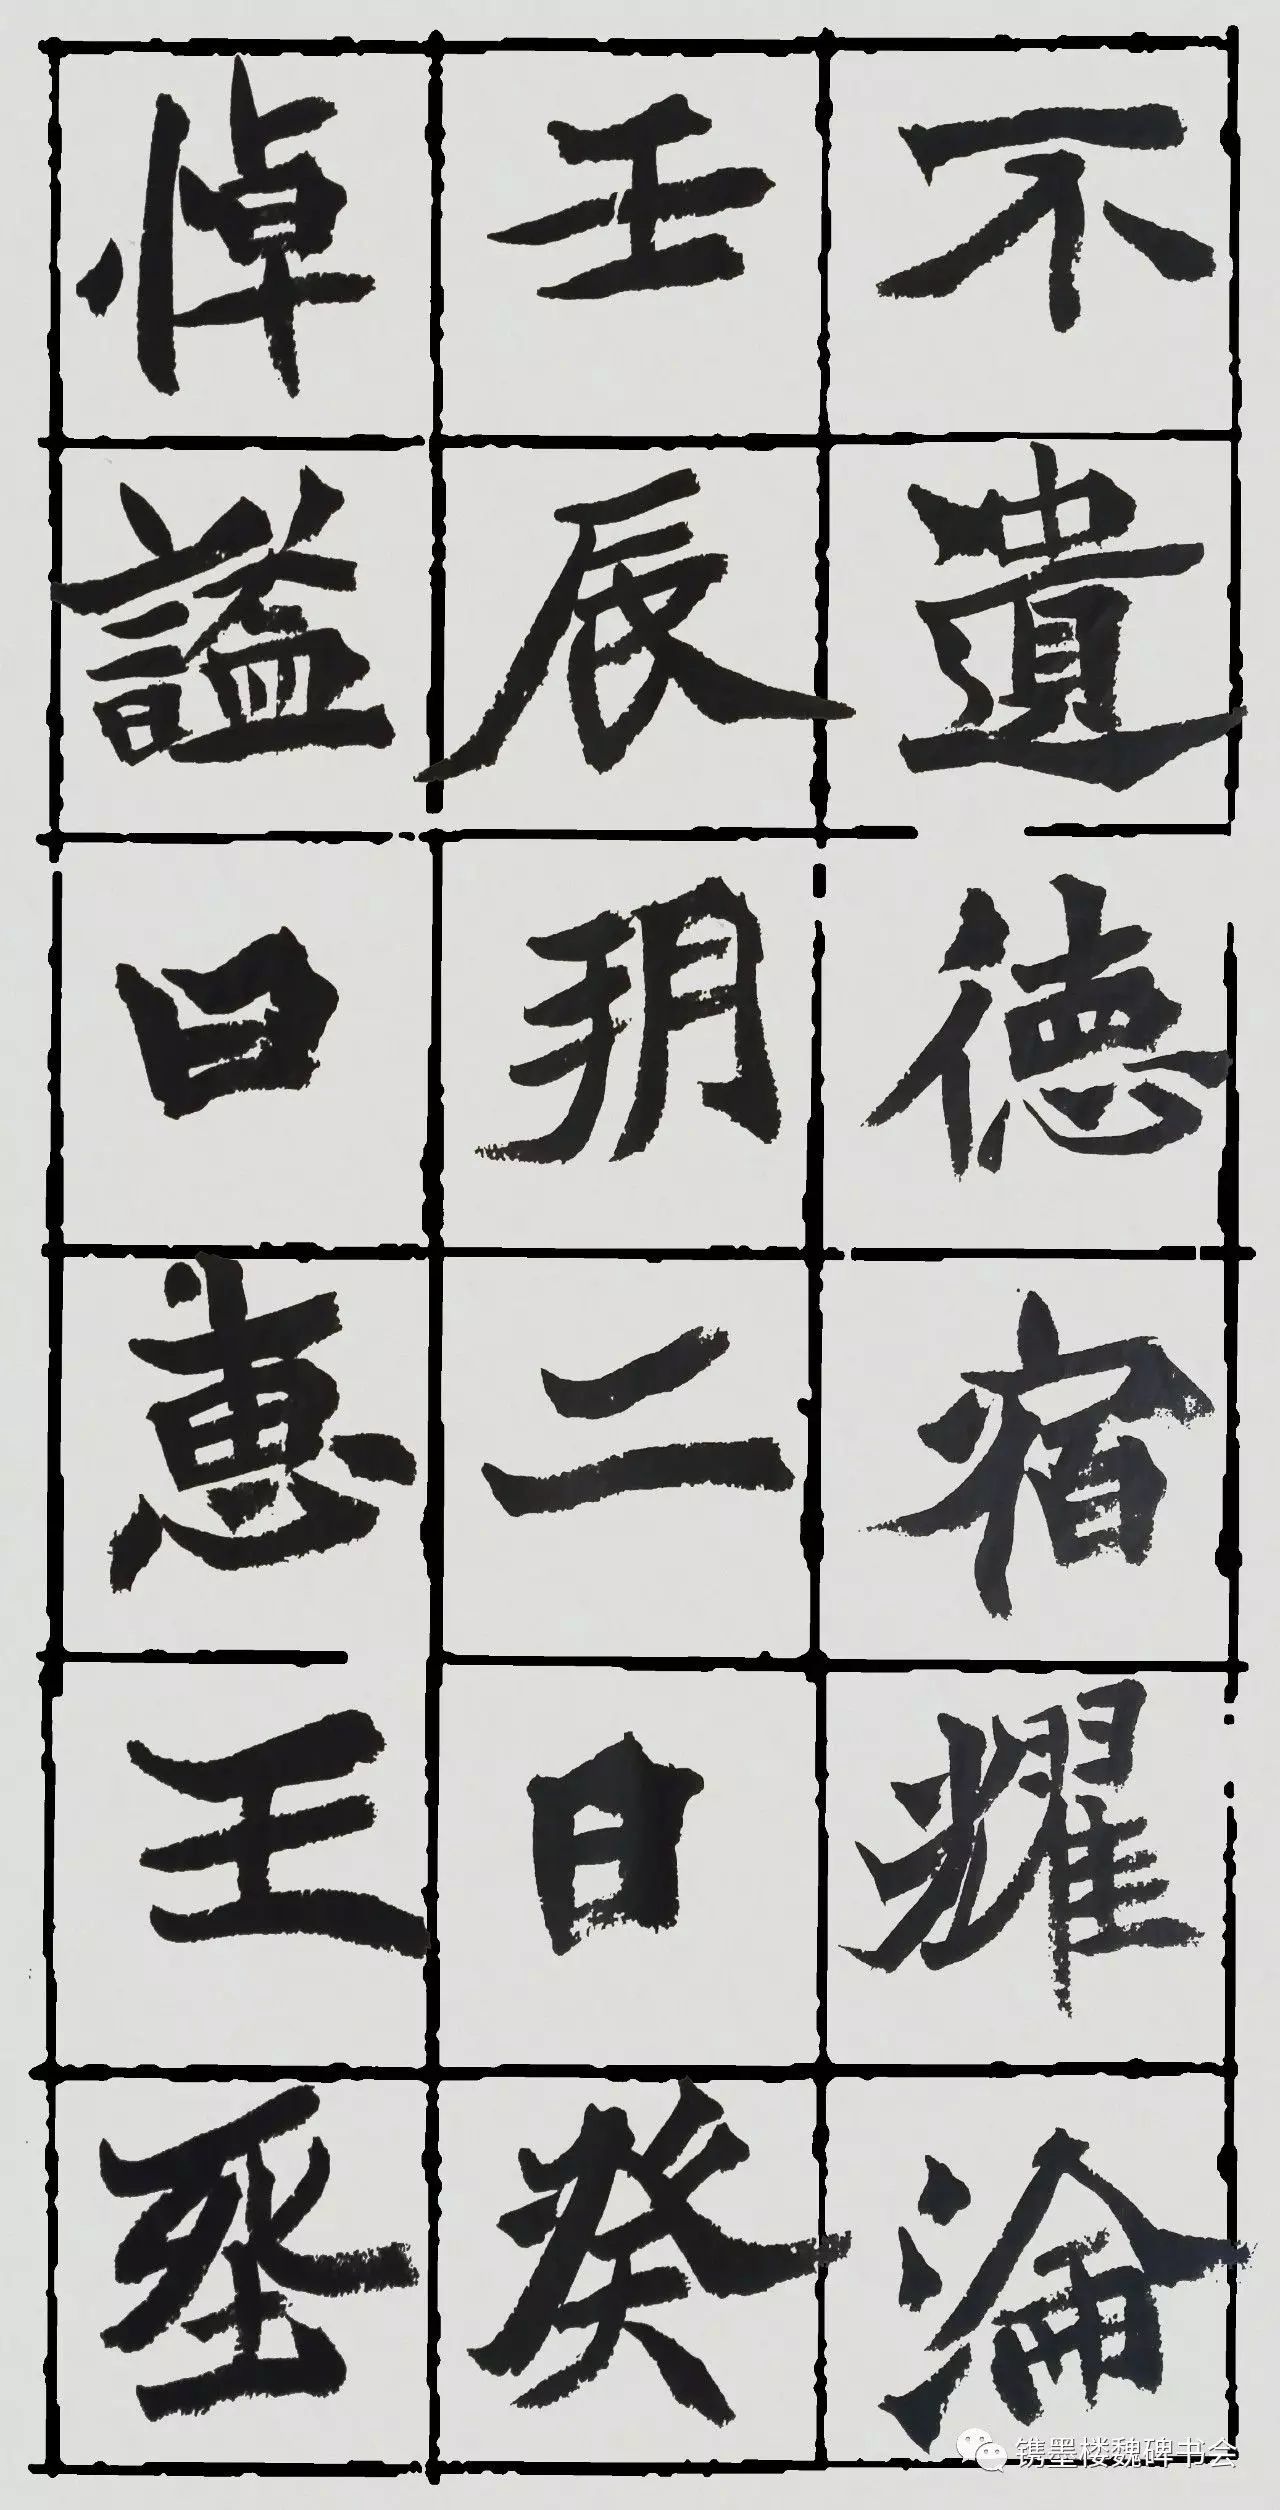 不遺德宿耀淪
壬辰朔二日癸
悼謚曰惠王葬
镌墨楼魏碑书会